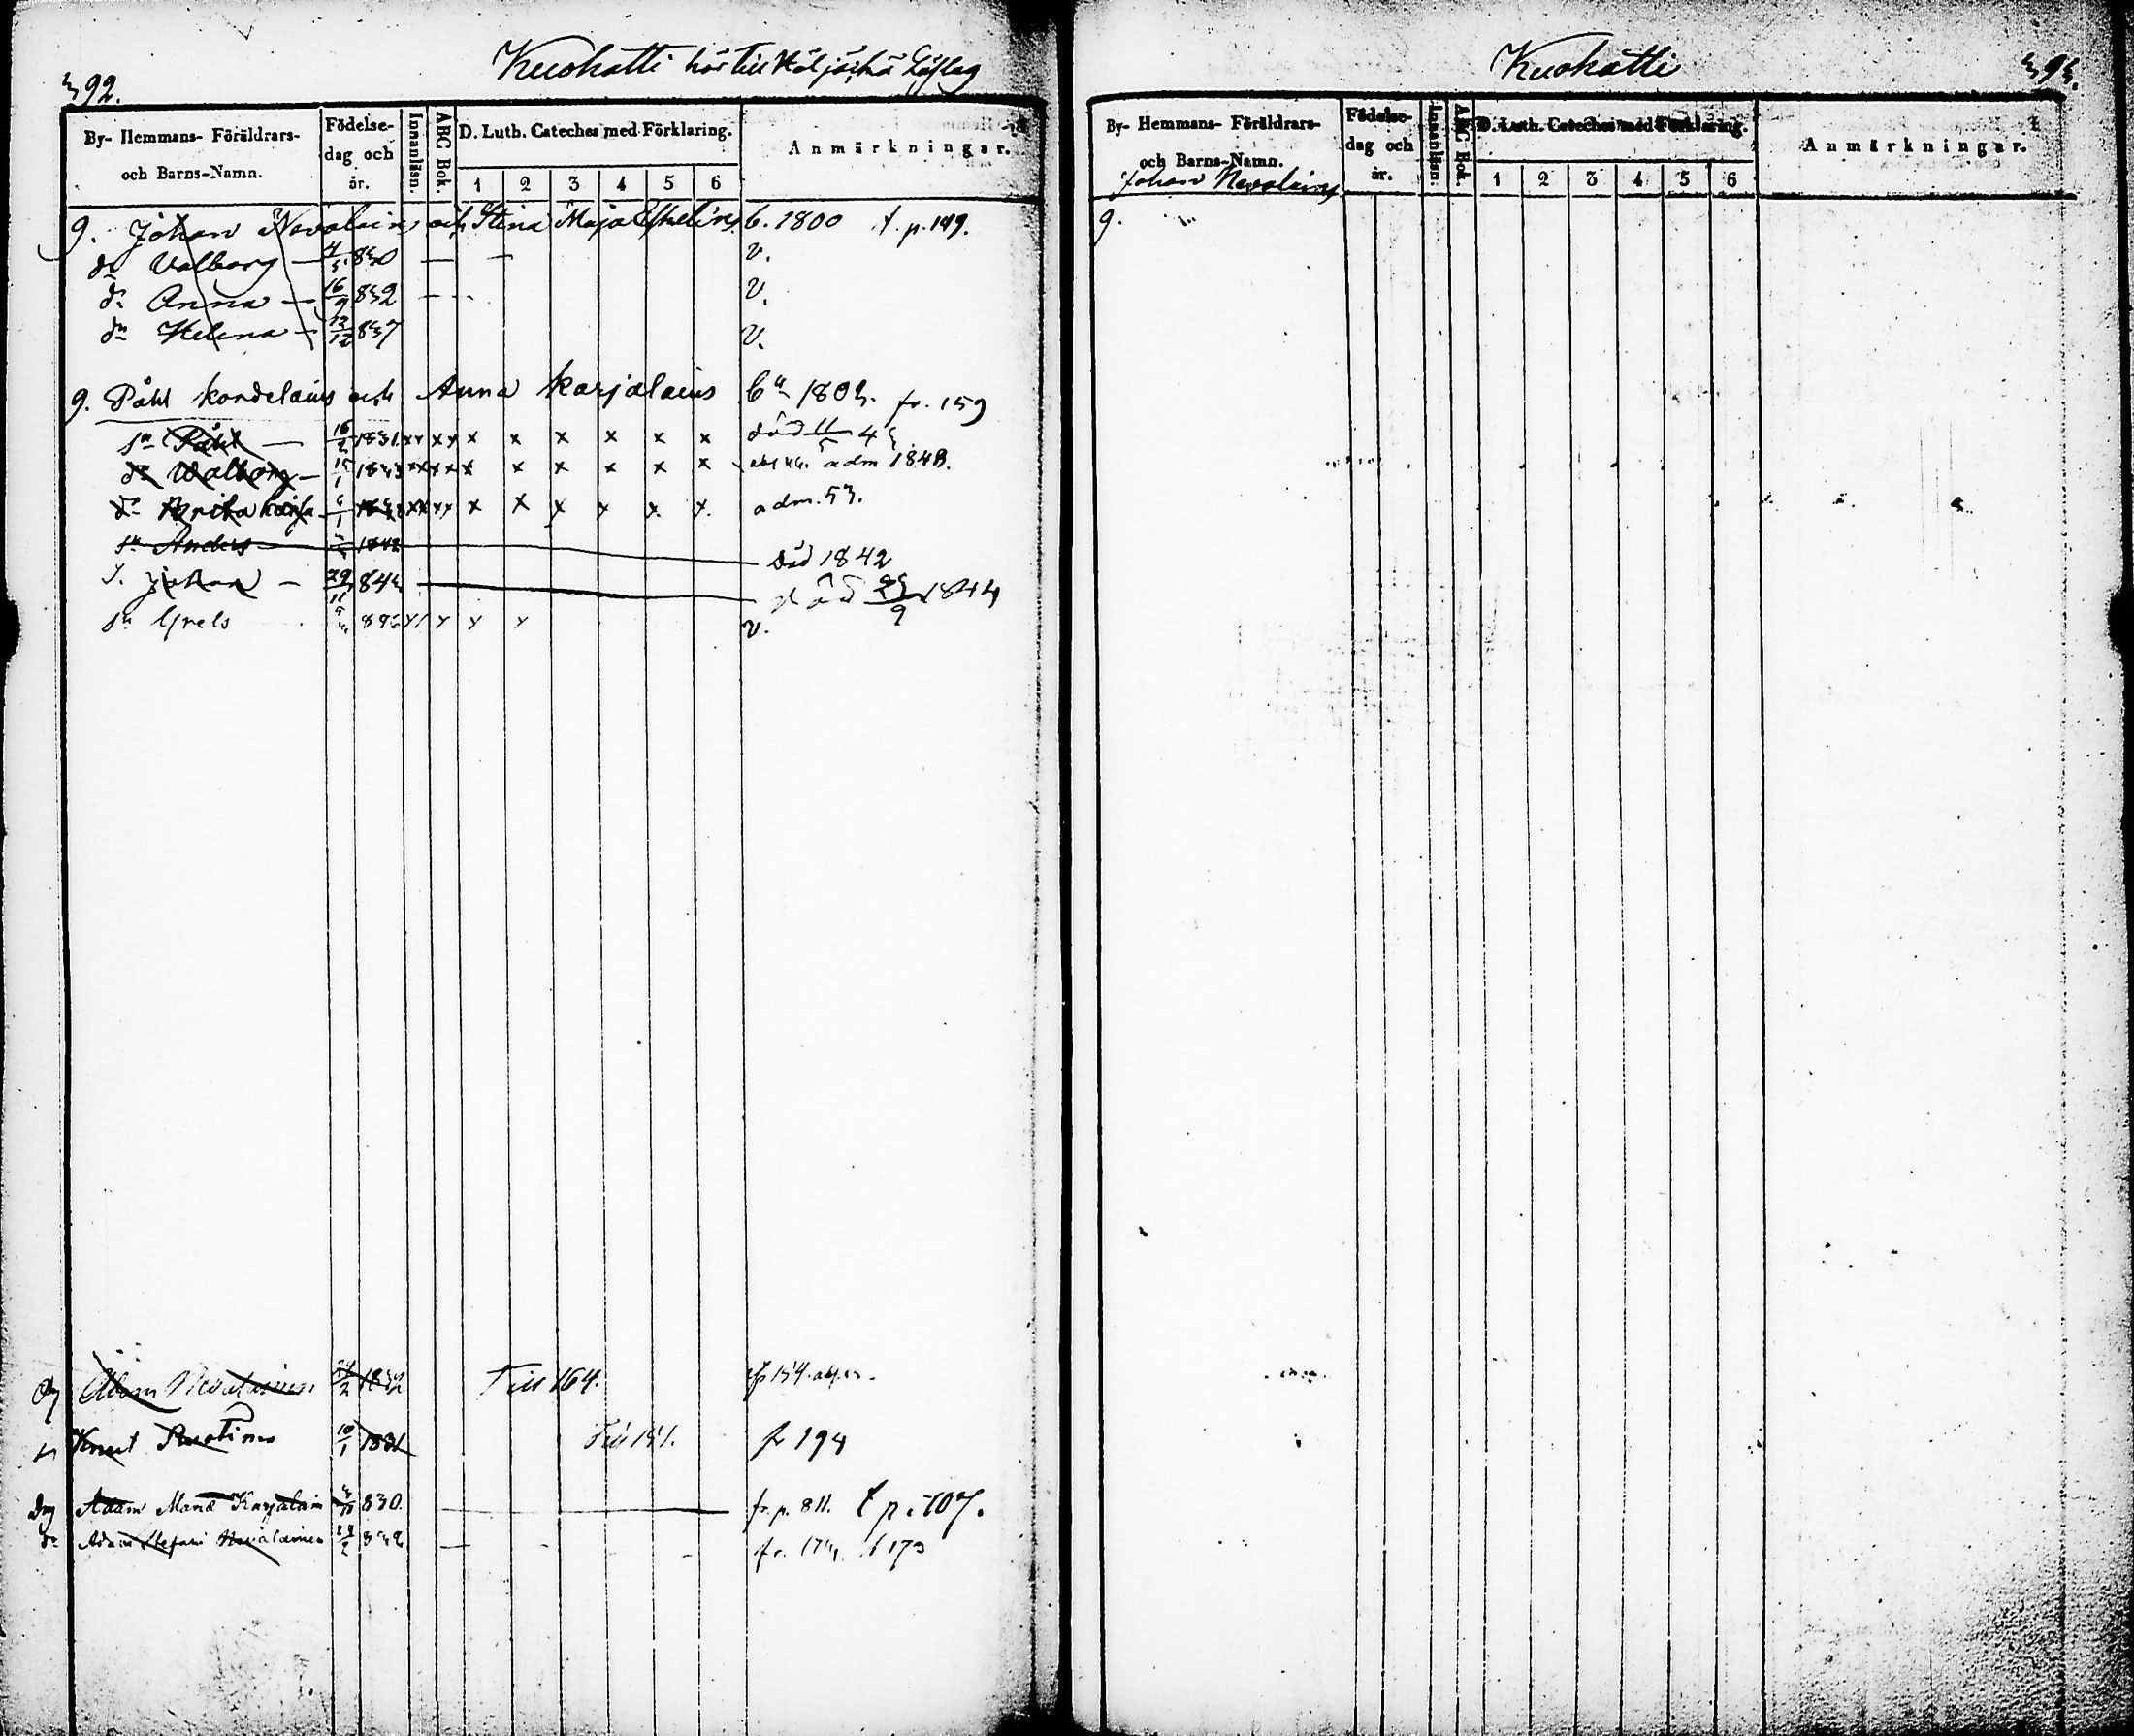 392.
Kuohatti hör till Höljäskä Läslag
By- Hemmans- Föräldrars- och Barns-Namn.
Födelse-dag och år.
Innanläsn.
ABC Bok.
D. Luth. Cateches med Förklaring.
1 2 3 4 5 6
Anmärkningar.
9. Johan Nevalain och Stina Maja b. 1800 t. p. 149.
dr Valborg — 4/5 830 — — v.
dr Anna — 16/9 832 — v.
dr Helena — 13/12 837 v.
9. Påhl Kordelains och Anna Karjalains fr. 159
sn Påhl — 16/2 1831 xx xx x x x x x x död 11/5
dr Walborg — 1833 xx xx x x x x x x adm 1848.
dr Brita Kaisa xx xx x x x x x x adm. 53.
sn Anders 1842 Död 1842
S. Johan — 29/11 843 död 1844
sn Grels x x x v.
Adam Nevalainen 24/2 1832 Till 164.
Knut 10/1 1831 Till 141. fr 194
drg Adam Mand Karjalain 830. fr. p. 811. t p. 107.
dr Adam Stefani Nevalainen fr. t 173
Kuohatti
393.
By- Hemmans- Föräldrars- och Barns-Namn.
Födelse-dag och år.
Innanläsn.
ABC Bok.
D. Luth. Cateches med Förklaring.
1 2 3 4 5 6
Anmärkningar.
Johan Nevalains
9.